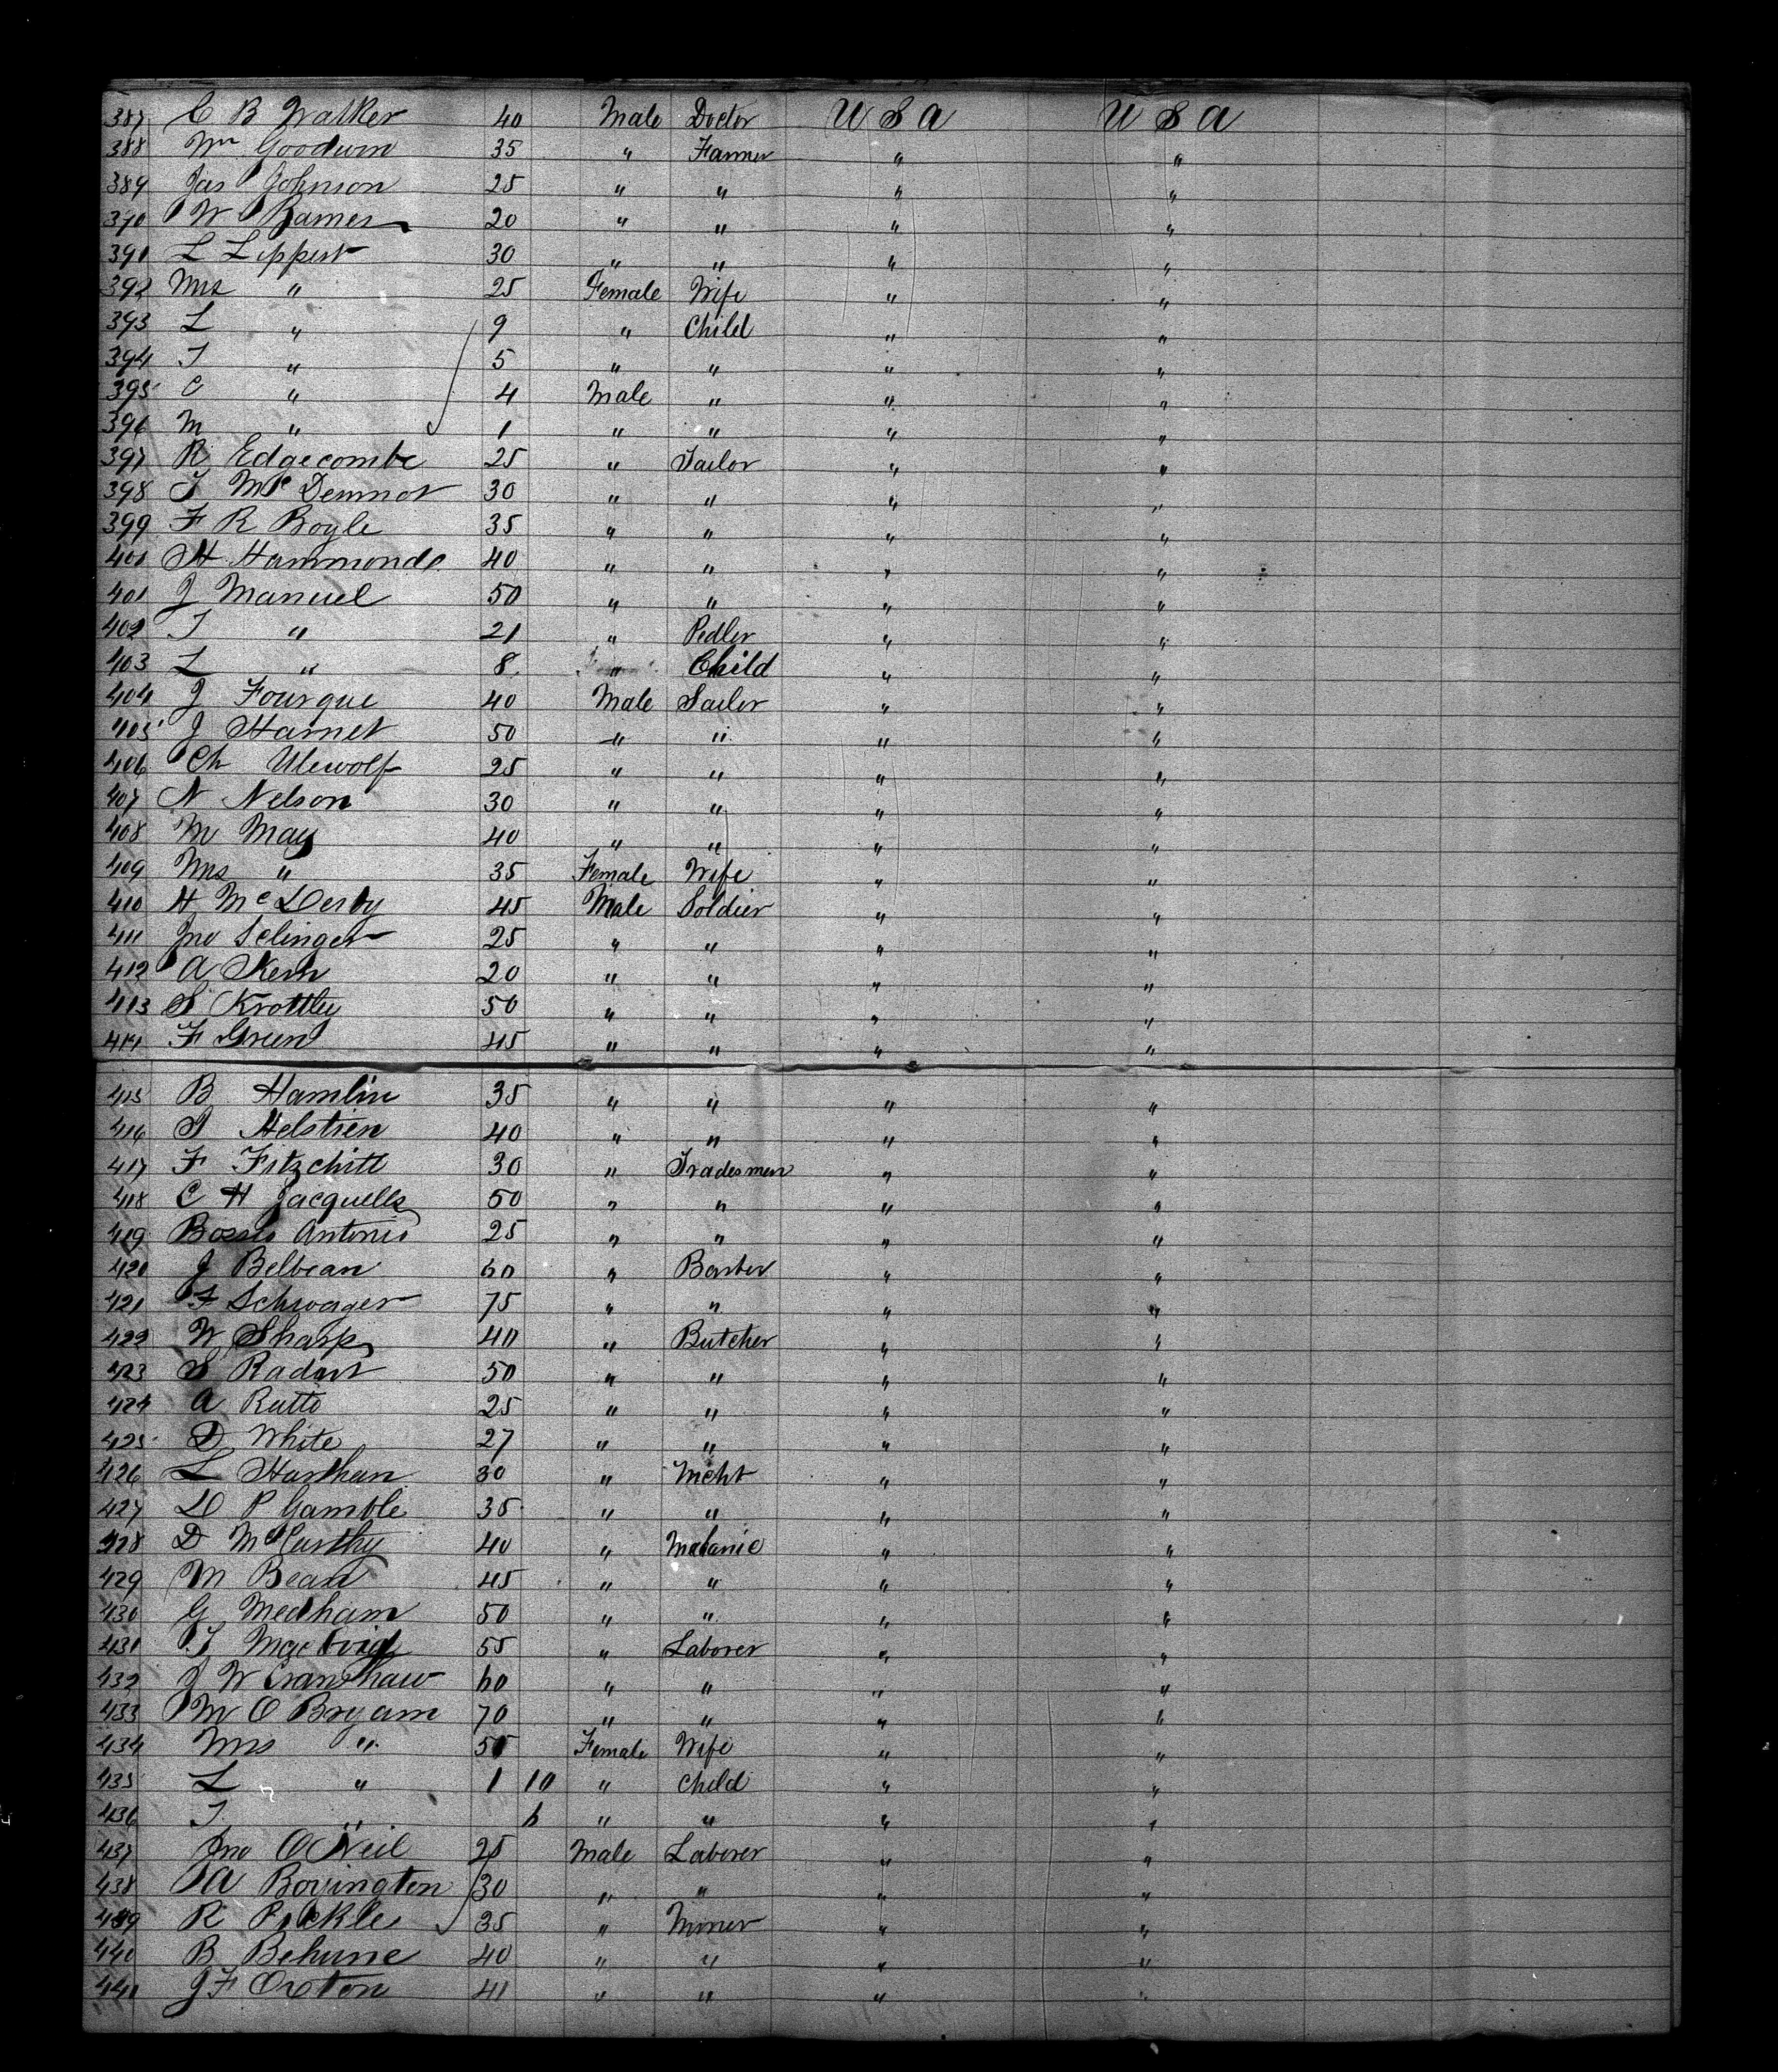 387 C B Walker 40 Male Doctor U S A U S A
388 Wm Goodwin 35 " Farmer " "
389 Jas Johnson 25 " " " "
390 W Barnes 20 " " " "
391 L Lippert 30 " " " "
392 Mrs " 25 Female Wife " "
393 L " 9 " Child " "
394 T " 5 " " " "
395 C " 4 Male " " "
396 M " 1 " " " "
397 R Edgecombe 25 " Tailor " "
398 T McDermot 30 " " " "
399 F R Boyle 35 " " " "
401 H Hammonds 40 " " " "
401 J Manuel 50 " " " "
402 T " 21 " Pedler " "
403 L " 8 " Child " "
404 J Fourque 40 Male Sailor " "
405 J Harnet 50 " " " "
406 Ch Ulewolf 25 " " " "
407 N Nelson 30 " " " "
408 M May 40 " " " "
409 Mrs " 35 Female Wife " "
410 H McDerby 45 Male Soldier " "
411 Jno Selinger 25 " " " "
412 A Kern 20 " " " "
413 S Krottley 50 " " " "
414 F Green 45 " " " "
415 B Hamlin 35 " " " "
416 J Helstien 40 " " " "
417 F Fitzchitt 30 " Tradesmen " "
418 C H Jacquells 50 " " " "
419 Antonio 25 " " " "
420 J Belbean 60 " Barber " "
421 F Schwager 75 " " " "
422 W Sharp 40 " Butcher " "
423 S Radart 50 " " " "
424 A Rutto 25 " " " "
425 D White 27 " " " "
426 L Harthan 30 " Mcht " "
427 D P Gamble 35 " " " "
428 D McCarthy 40 " Macanic " "
429 M Bean 45 " " " "
430 G Medham 50 " " " "
431 T 55 " Laborer " "
432 J W Cranshaw 60 " " " "
433 M O Bryam 70 " " " "
434 Mrs " 50 Female Wife " "
435 L " 1 10 " Child " "
436 T " 6 " " " "
437 Jno O Neil 25 Male Laborer " "
438 A Bovington 30 " " " "
439 R Pickles 35 " Miner " "
440 B Behune 40 " " " "
441 J F Oroton 41 " " " "